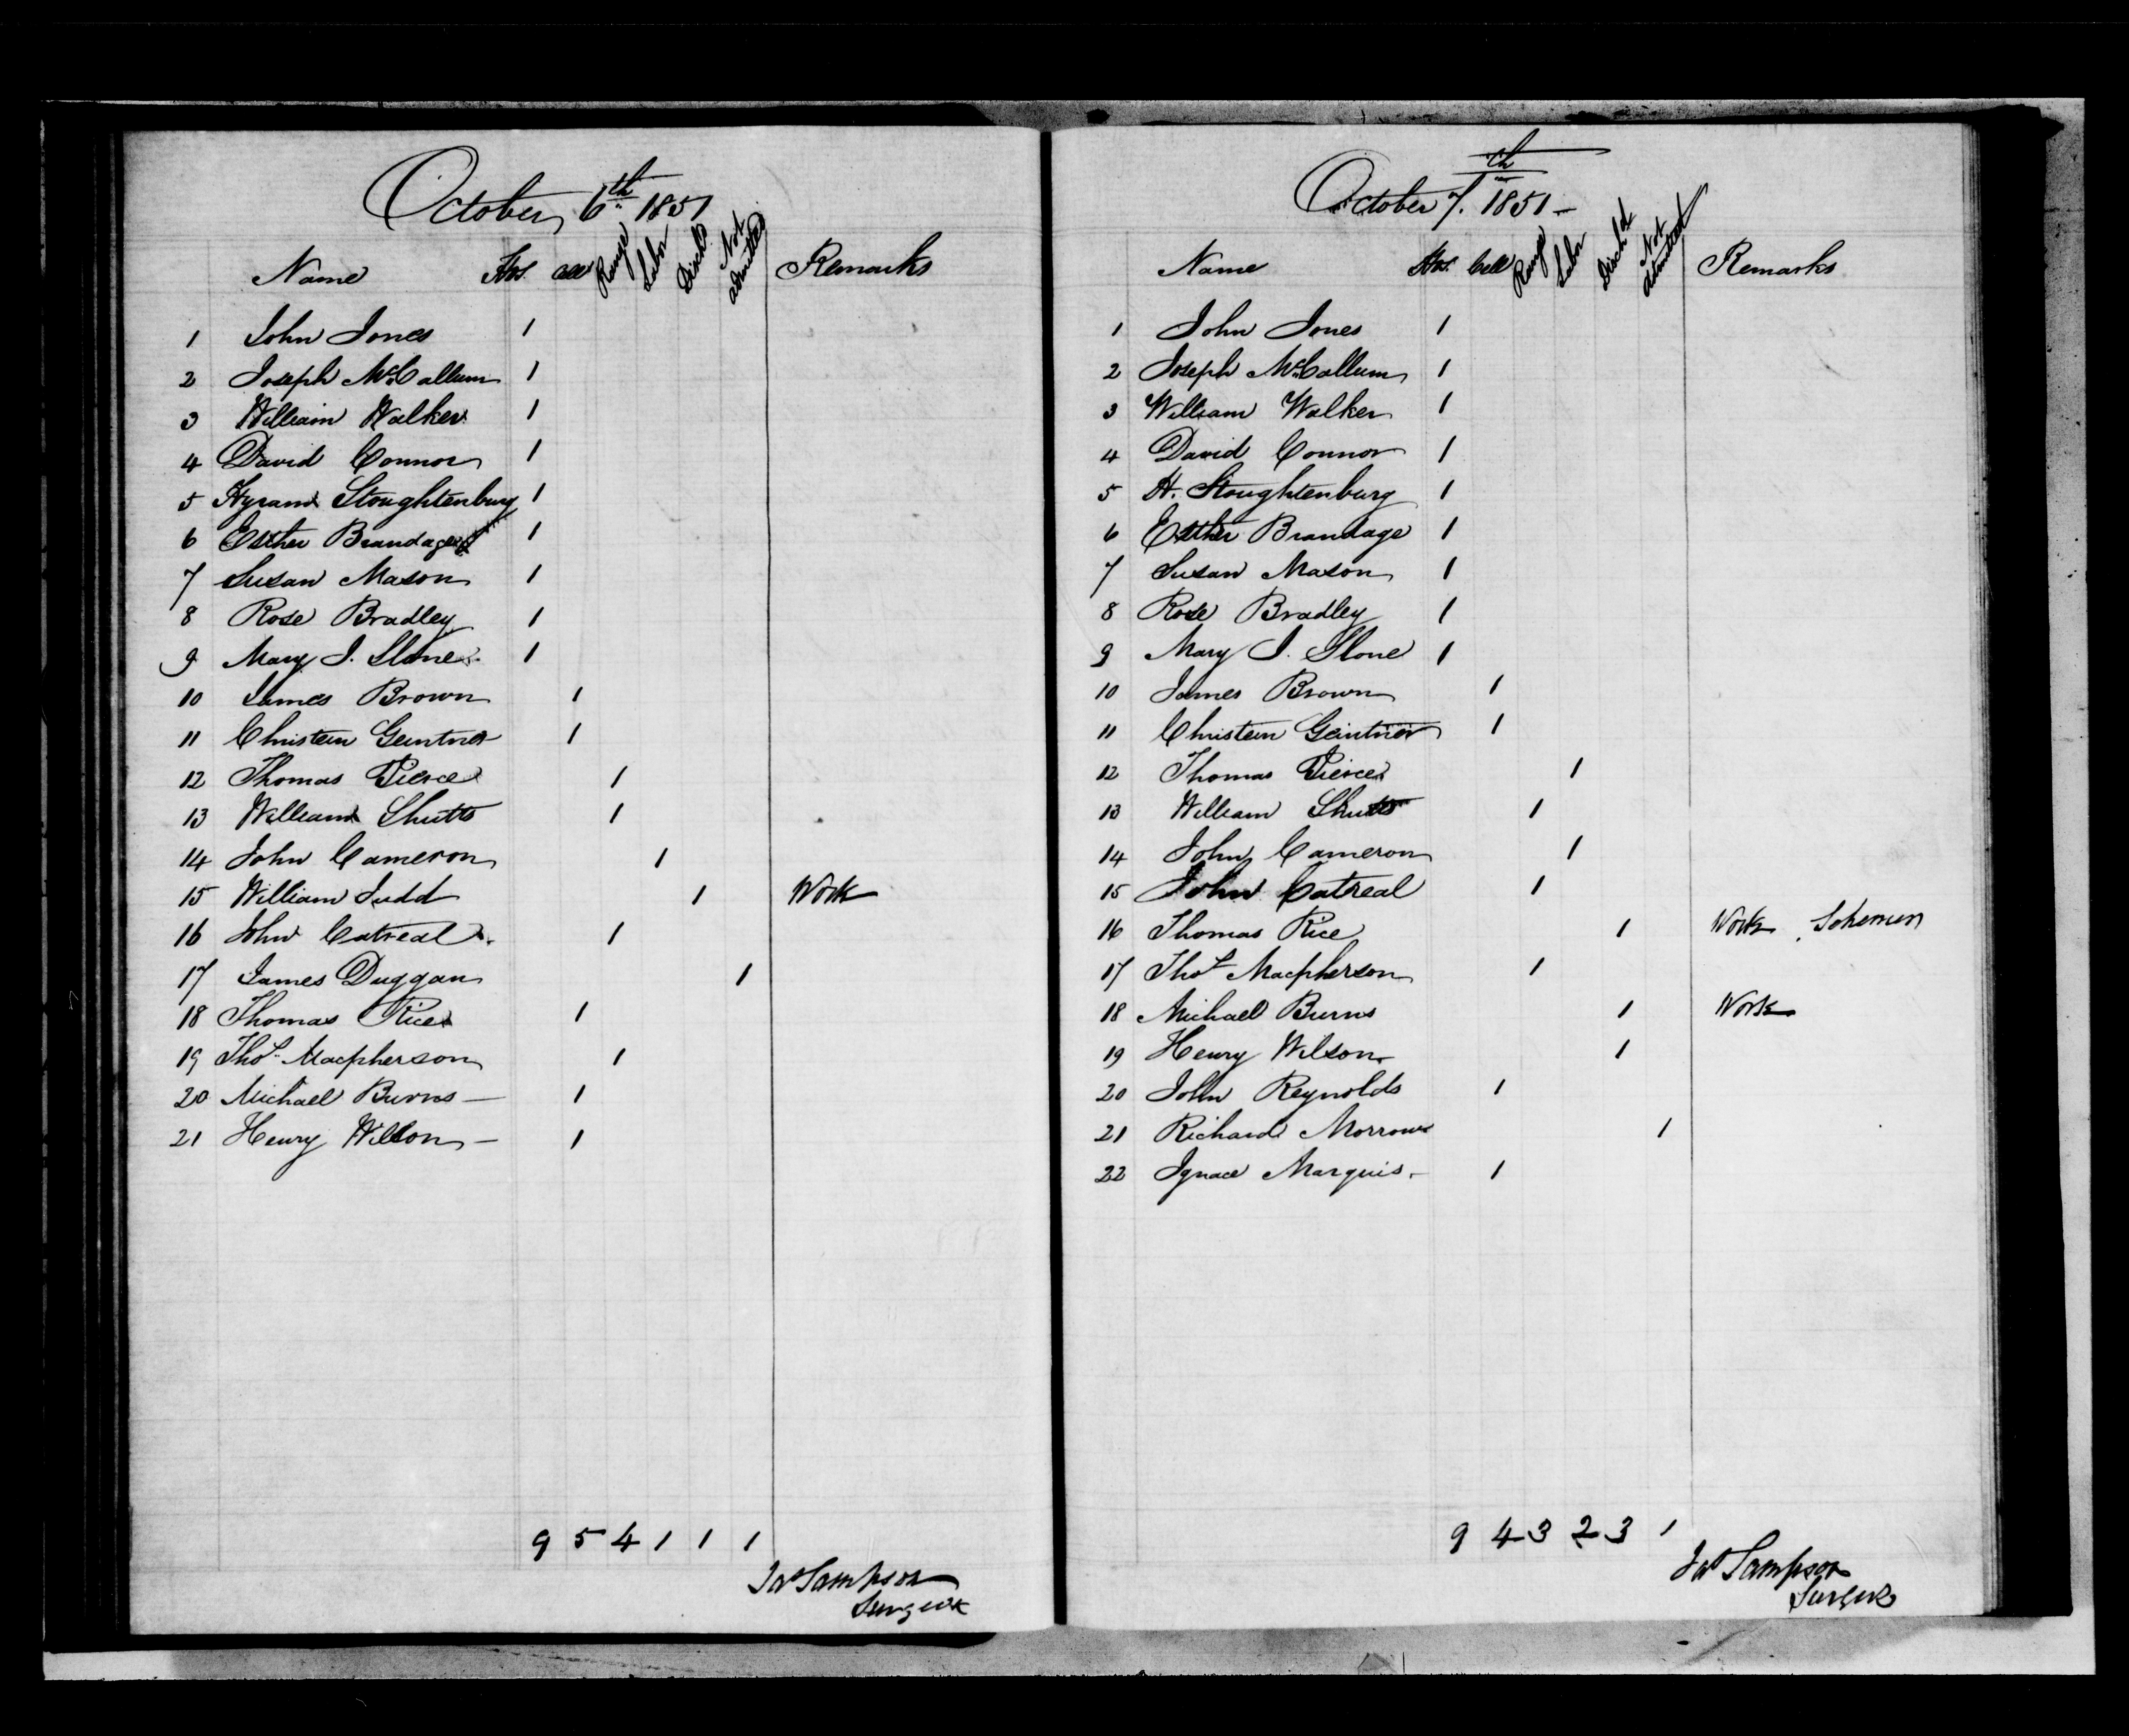 October 6th 1851
Name Hos. Cell Range Labor Disch'd Not admitted Remarks
1 John Jones 1
2 Joseph McCallum 1
3 William Walker 1
4 David Connor 1
5 Hyram Stoughtenburg 1
6 Esther Brandage 1
7 Susan Mason 1
8 Rose Bradley 1
9 Mary J. Slone 1
10 James Brown 1
11 Christein Geintner 1
12 Thomas Pierce 1
13 William Shutts 1
14 John Cameron 1
15 William Judd 1 Work
16 John Catreal 1
17 James Duggan 1
18 Thomas Rice 1
19 Thos. Macpherson 1
20 Michael Burns — 1
21 Henry Wilson — 1
9 5 4 1 1 1
Jas Sampson
Surgeon
October 7th. 1851 —
Name Hos. Cell Range Labor Disch'd Not admitted Remarks
1 John Jones 1
2 Joseph McCallum 1
3 William Walker 1
4 David Connor 1
5 H. Stoughtenburg 1
6 Esther Brandage 1
7 Susan Mason 1
8 Rose Bradley 1
9 Mary J. Slone 1
10 James Brown 1
11 Christein Geintner 1
12 Thomas Pierce 1
13 William Shutts 1
14 John Cameron 1
15 John Catreal 1
16 Thomas Rice 1 Work
17 Thos Macpherson 1
18 Michael Burns 1 Work
19 Henry Wilson 1
20 John Reynolds 1
21 Richard Morrow 1
22 Ignace Marquis. 1
9 4 3 2 3 1
Jas Sampson
Surgeon